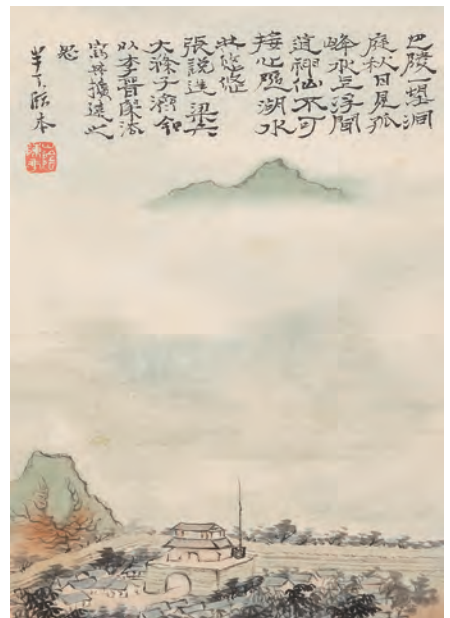 巴陵一望洞
庭秋日見孤
峰水上浮聞
道神仙不可
接心隨湖水
共悠悠
張說送梁六
大滌子濟
以李晉康法
寫其擴遠之
半丁臨本